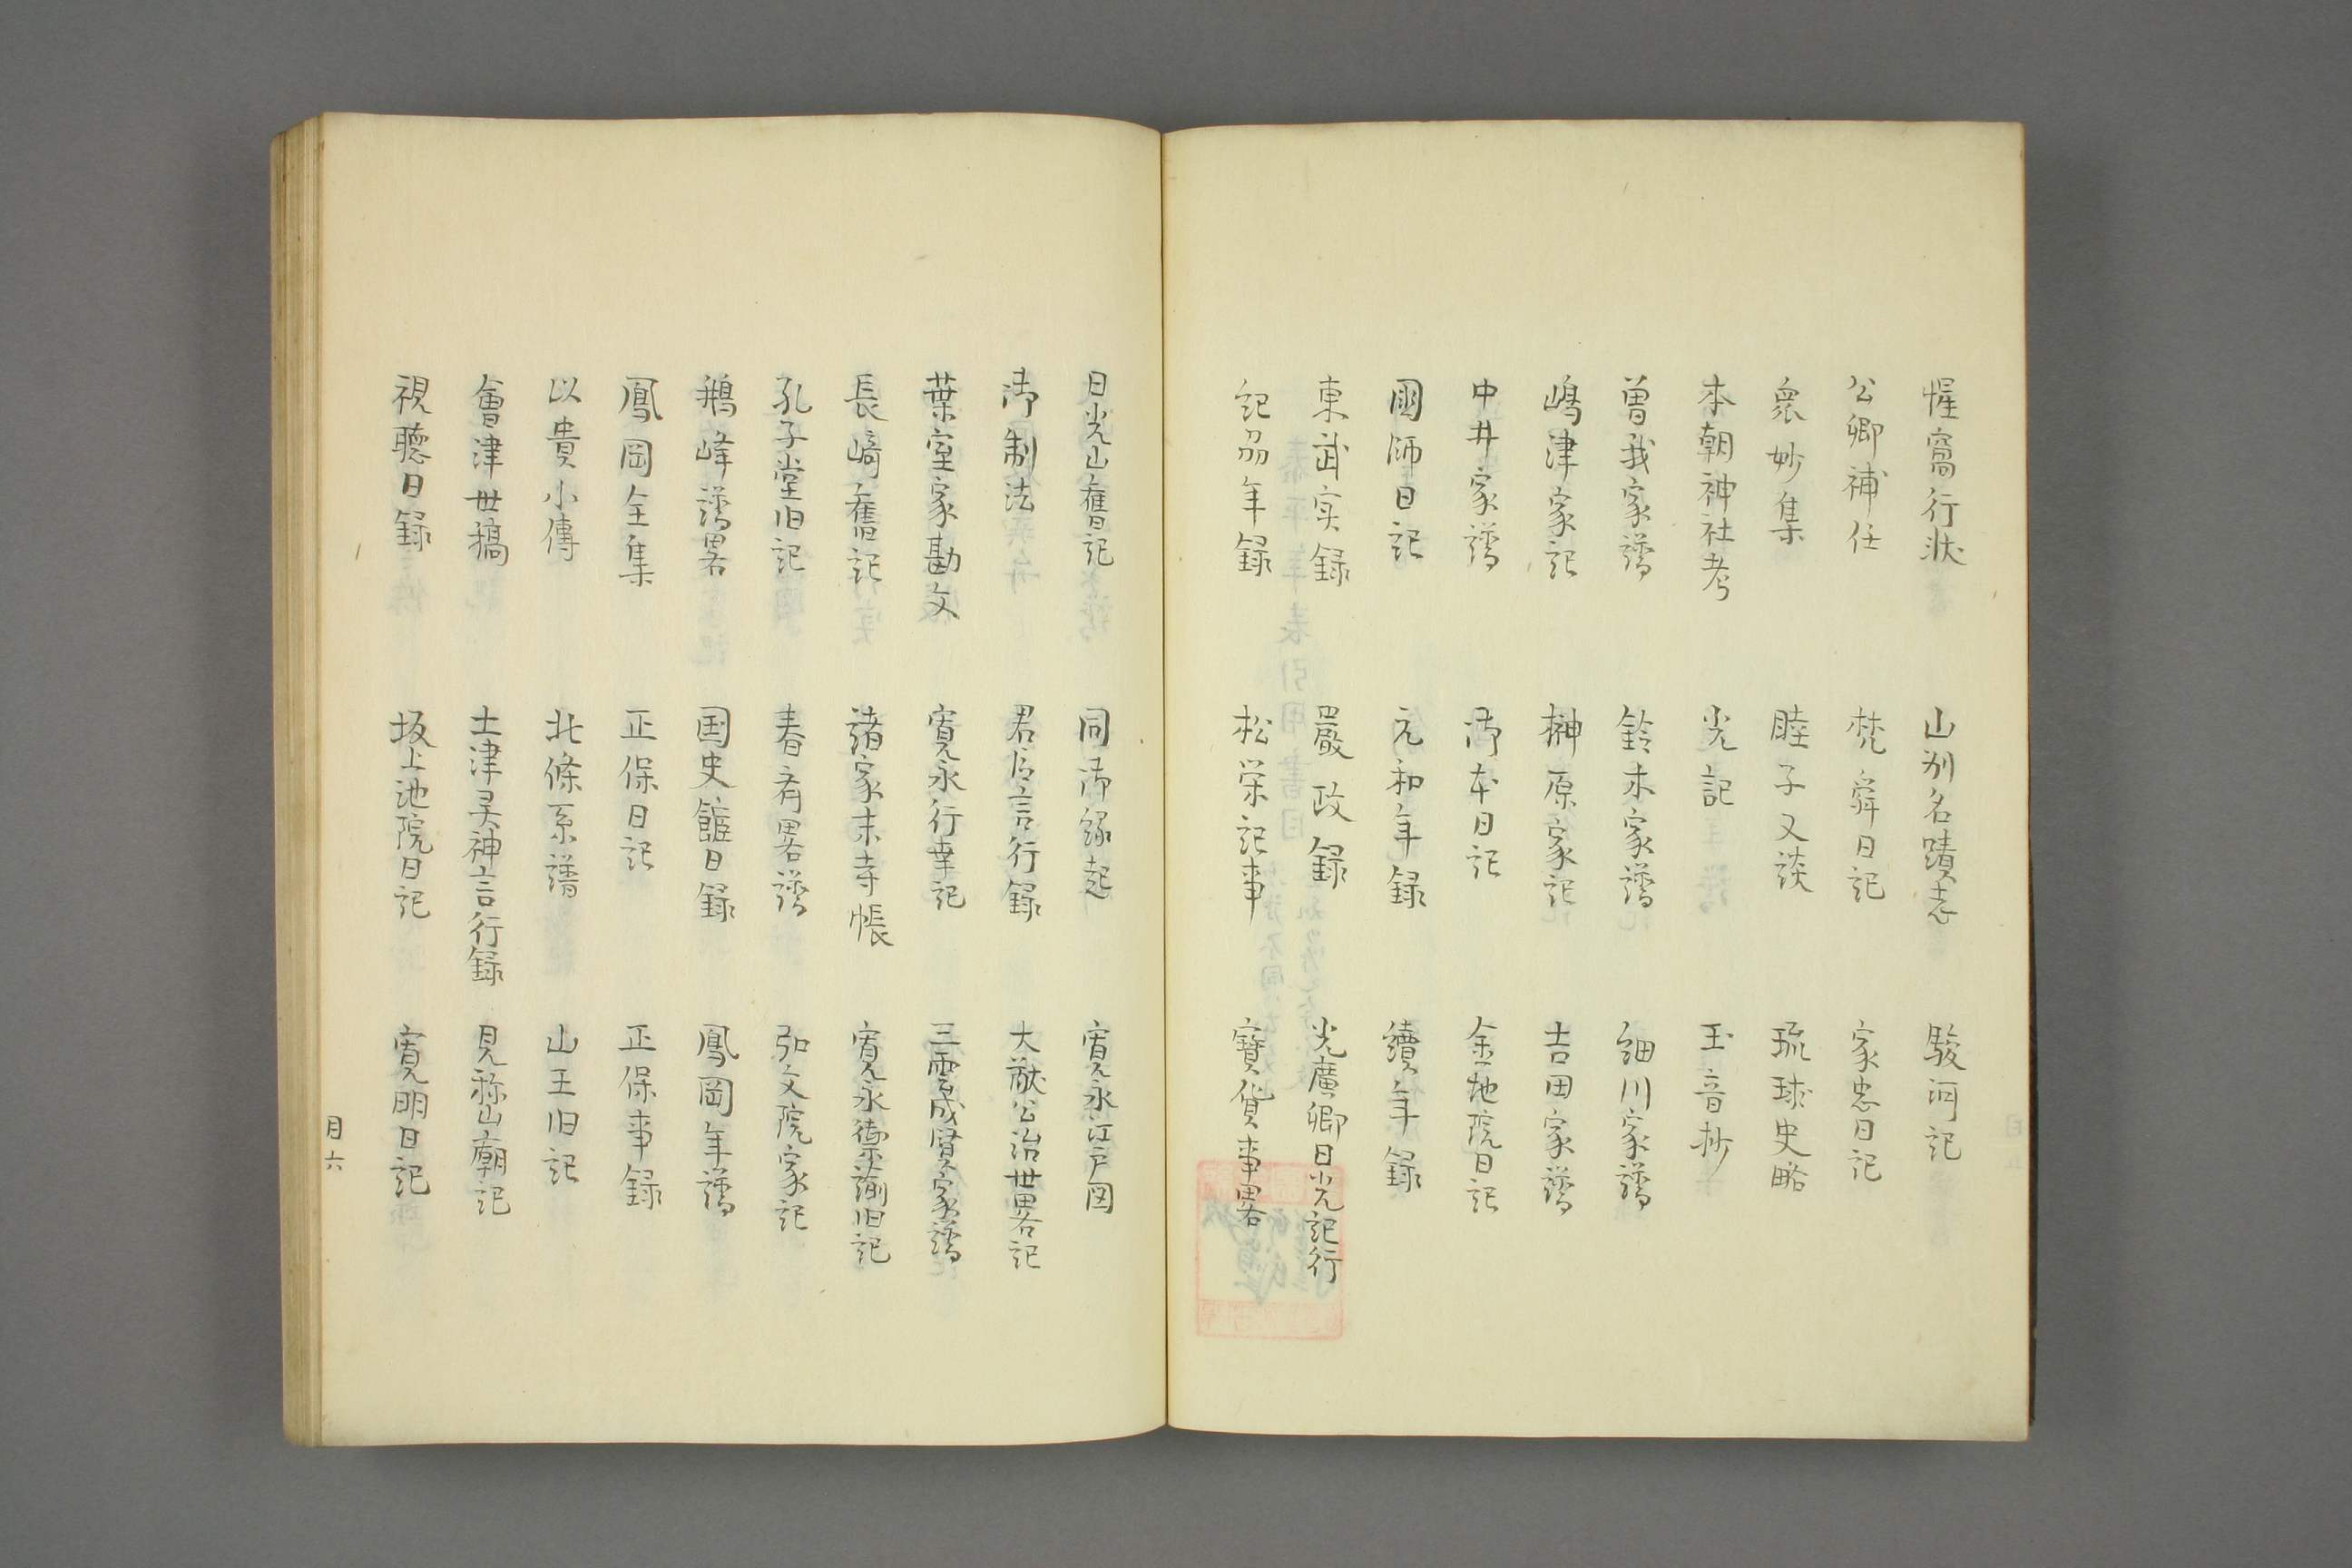 惺窩行状　山州名蹟志　駿河記
公卿補任　梵舜日記　家忠日記
衆妙集　睦子又談　琉球史略
本朝神社考　光記　玉音抄
曽我家譜　鈴木家譜　細川家譜
嶋津家記　榊原家記　吉田家譜
中井家譜　御本日記　金地院日記
國師日記　元和年録　續年録
東武実録　嚴政録　光廣卿日光記行
紀劦年録　松栄記事　寳貨事畧
日光山舊記　同御縁起　寛永江戸図
御制法　君臣言行録　大猷公治世畧記
葉室家勘文　寛永行幸記　三雲成賢家譜
長﨑舊記　諸家末寺帳　寛永禦蒴旧記
孔子堂旧記　春斎畧譜　弘文院家記
鵞峰譜畧　国史館日録　鳳岡年譜
鳳岡全集　正保日記　正保事録
以貴小傳　北條系譜　山王旧記
會津世稿　土津灵神言行録　見祢山廟記
視聴日録　坂上池院日記　寛明日記
目六